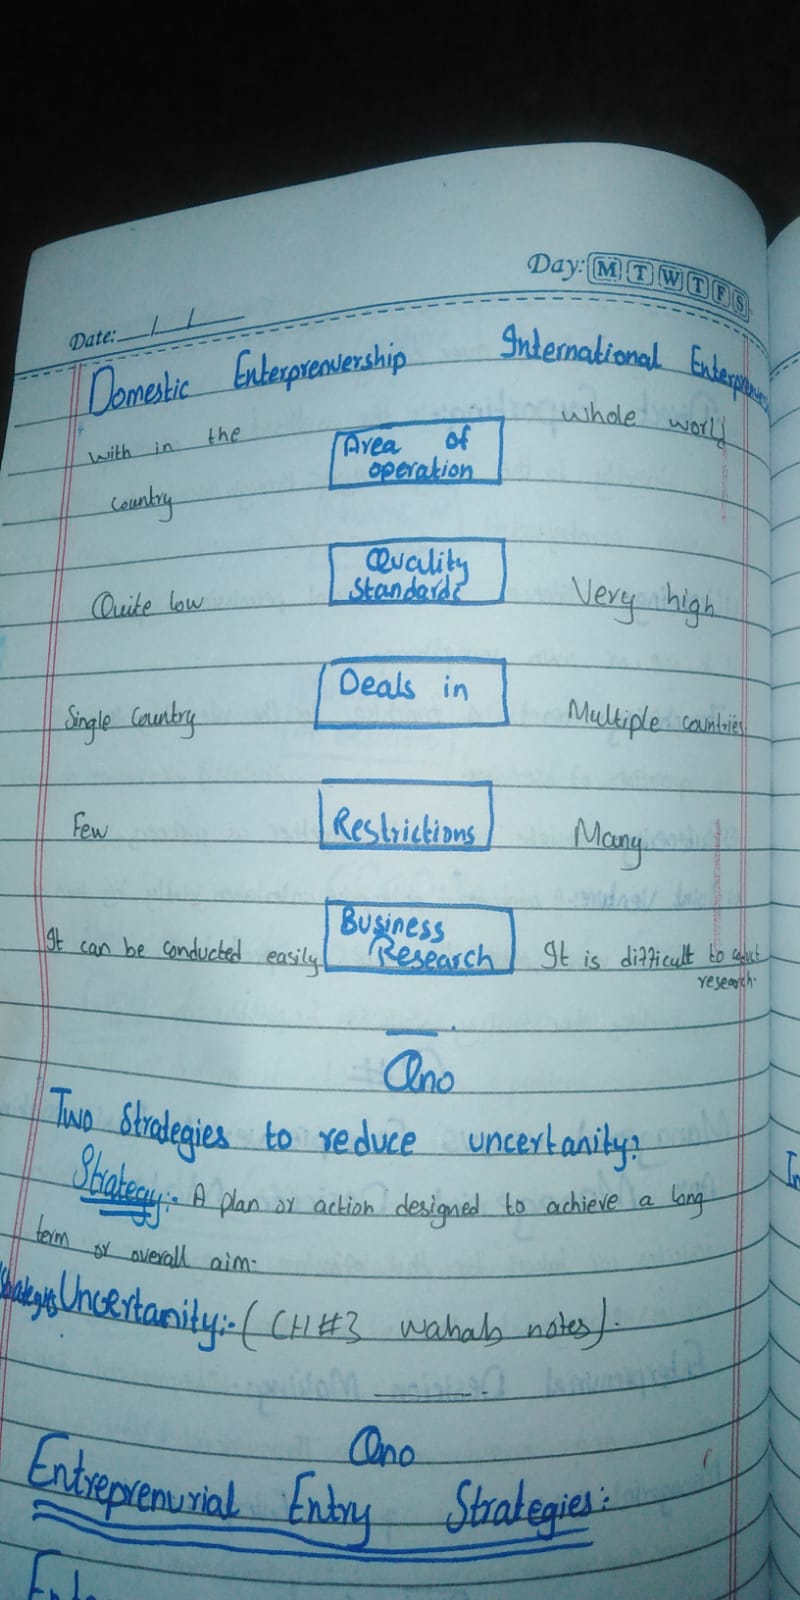 Day: M T W T F S
Date: / /
Domestic Enterprenuership International Enterprenue
with in the Area of whole world
country operation
Quite low Quality Standards Very high
Single Country Deals in Multiple countries
Few Restrictions Many
It can be conducted easily Business Research It is difficult to conduct
research.
Qno
Two Strategies to reduce uncertanity?
Strategy:- A plan or action designed to achieve a long
term or overall aim.
Strategies Uncertanity:- (CH#3 wahab notes).
Qno
Entreprenurial Entry Strategies: